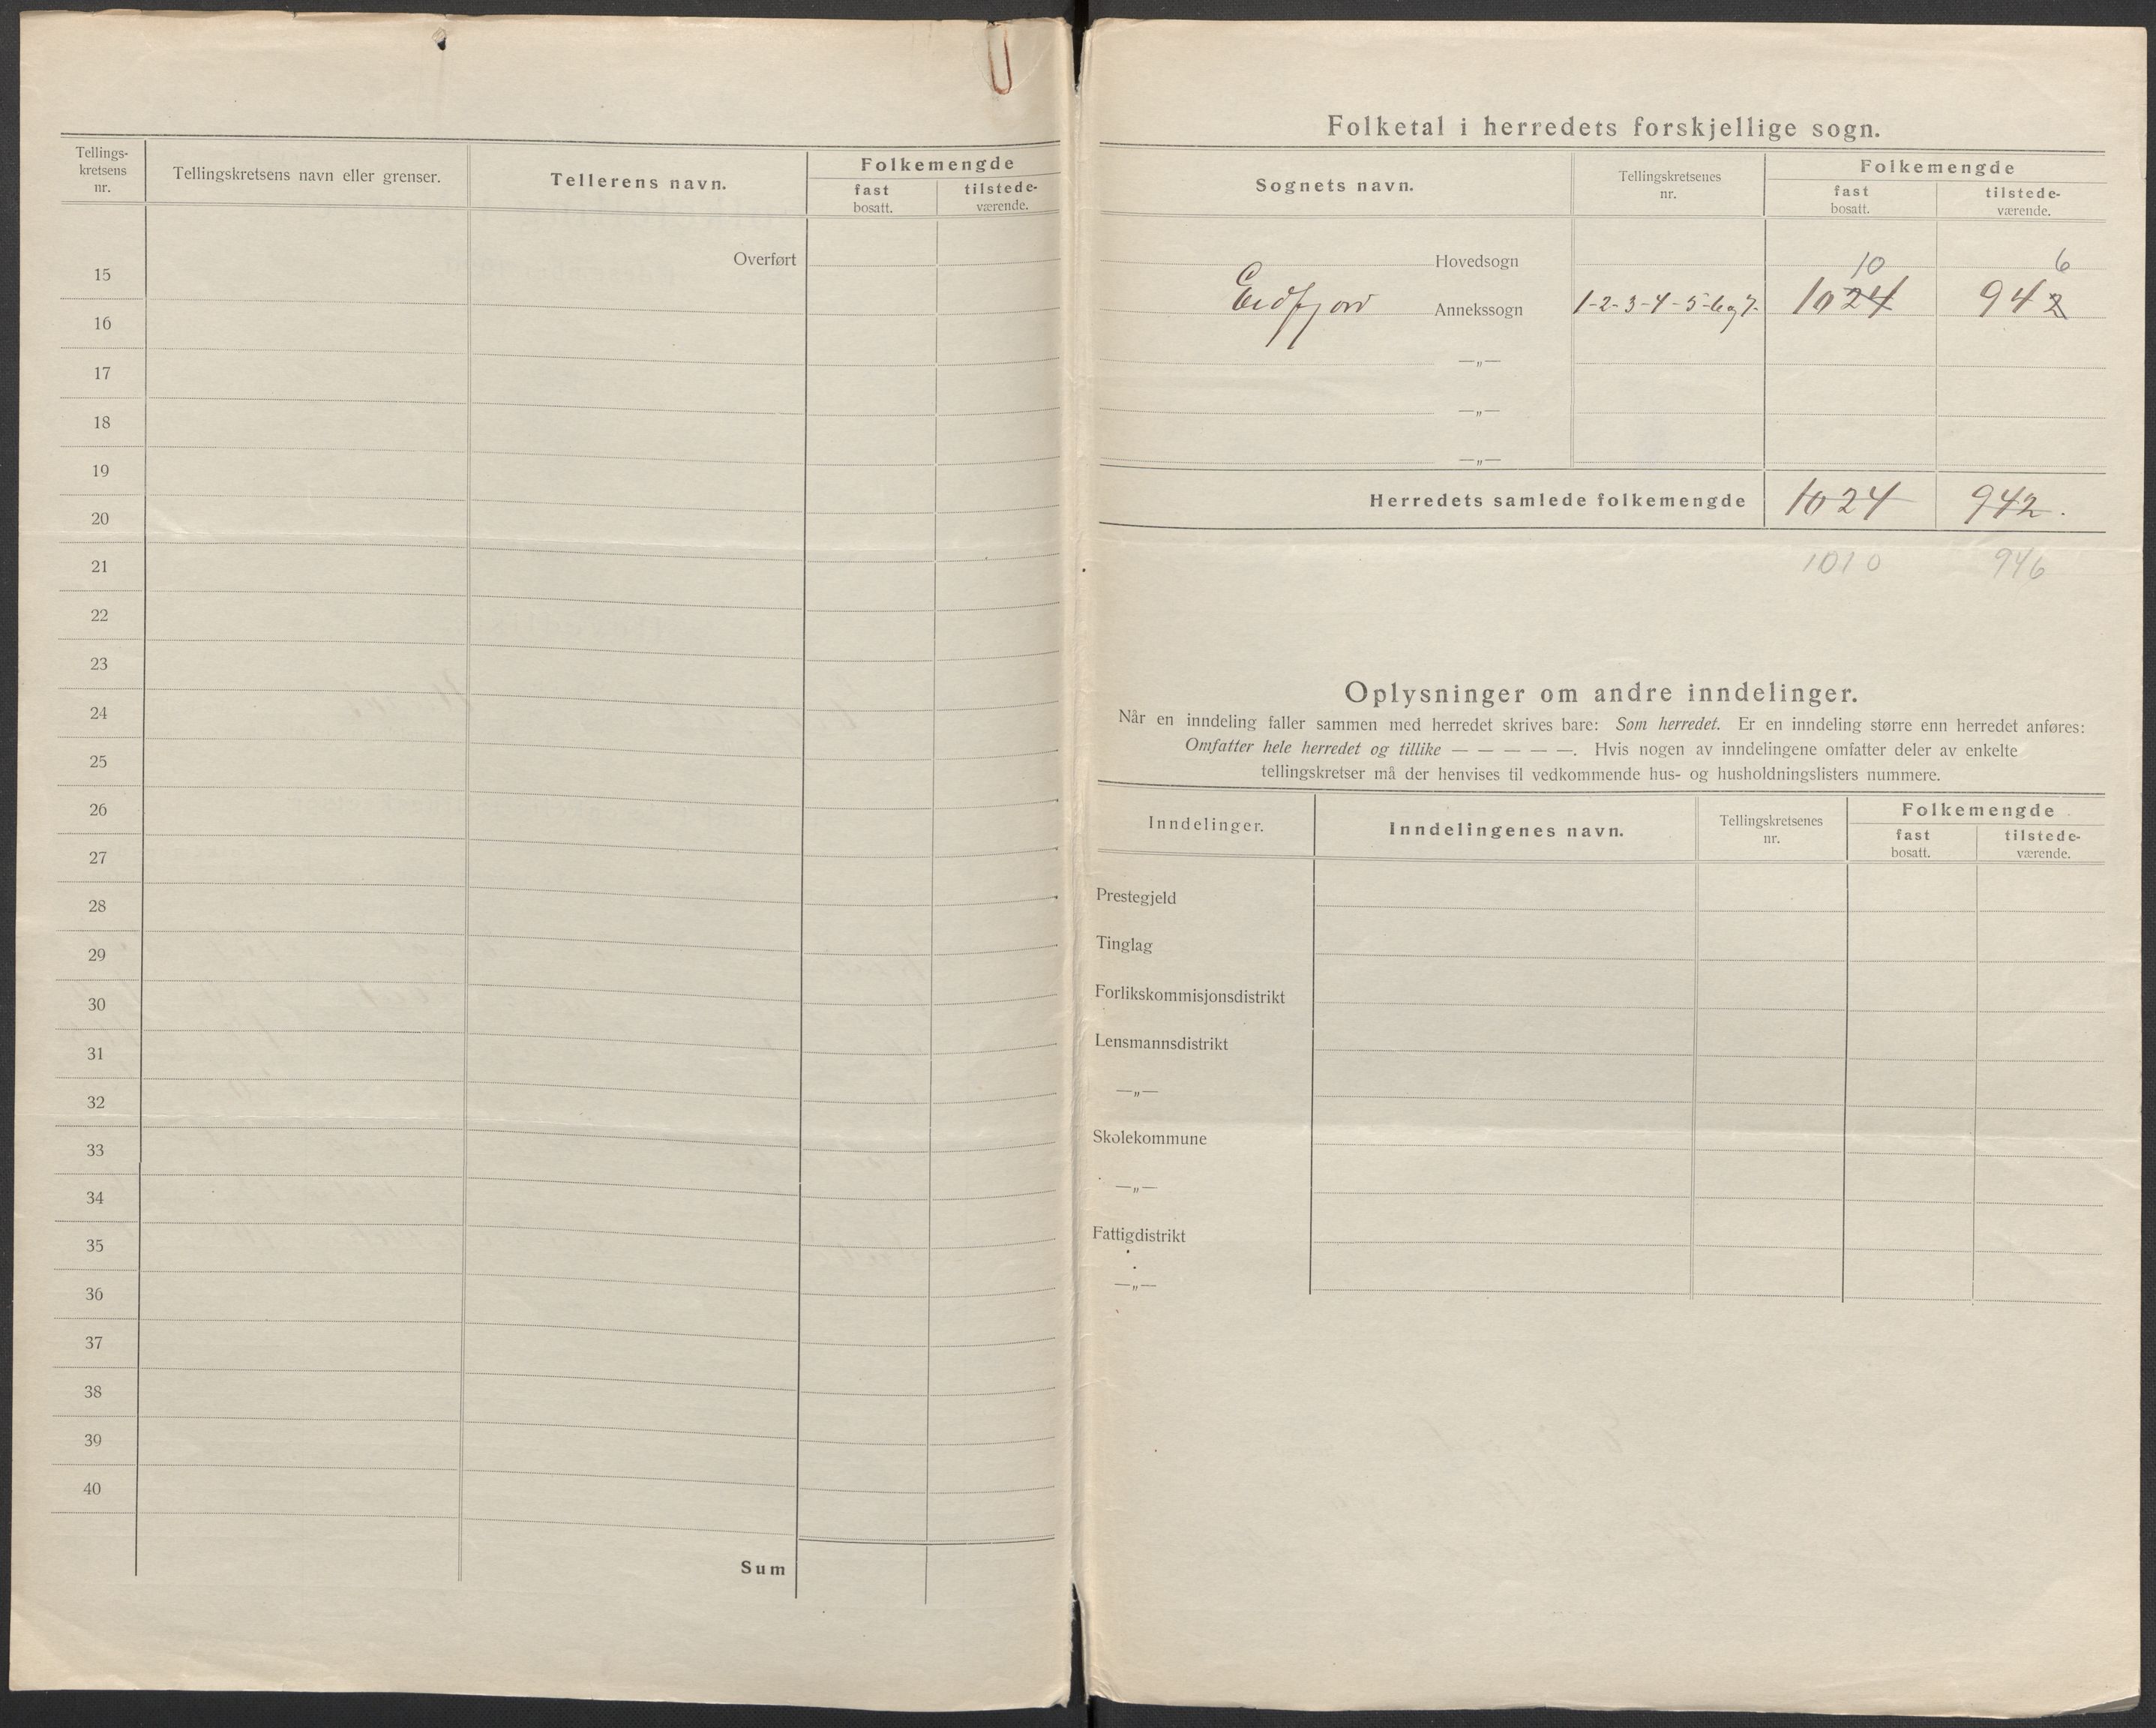 Tellings-
kretsens
nr.
Tellingskretsens navn eller grenser.
Tellerens navn.
Folkemengde
fast
bosatt.
tilstede-
værende.
Overført
15
16
17
18
19
20
21
22
23
24
25
26
27
28
29
30
31
32
33
34
35
36
37
38
39
40
Sum
Folketal i herredets forskjellige sogn.
Sognets navn.
Tellingskretsenes
nr.
Folkemengde
fast
bosatt.
tilstede-
værende.
Hovedsogn
10 6
Eidfjord Annekssogn 1-2-3-4-5-6 og 7. 1024 942
—„—
—„—
—„—
Herredets samlede folkemengde 1024 942.
1010 946
Oplysninger om andre inndelinger.
Når en inndeling faller sammen med herredet skrives bare: Som herredet. Er en inndeling større enn herredet anføres:
Omfatter hele herredet og tillike — — — — —. Hvis nogen av inndelingene omfatter deler av enkelte
tellingskretser må der henvises til vedkommende hus- og husholdningslisters nummere.
Inndelinger.
Inndelingenes navn.
Tellingskretsenes
nr.
Folkemengde
fast
bosatt.
tilstede-
værende.
Prestegjeld
Tinglag
Forlikskommisjonsdistrikt
Lensmannsdistrikt
—„—
Skolekommune
—„—
Fattigdistrikt
—„—